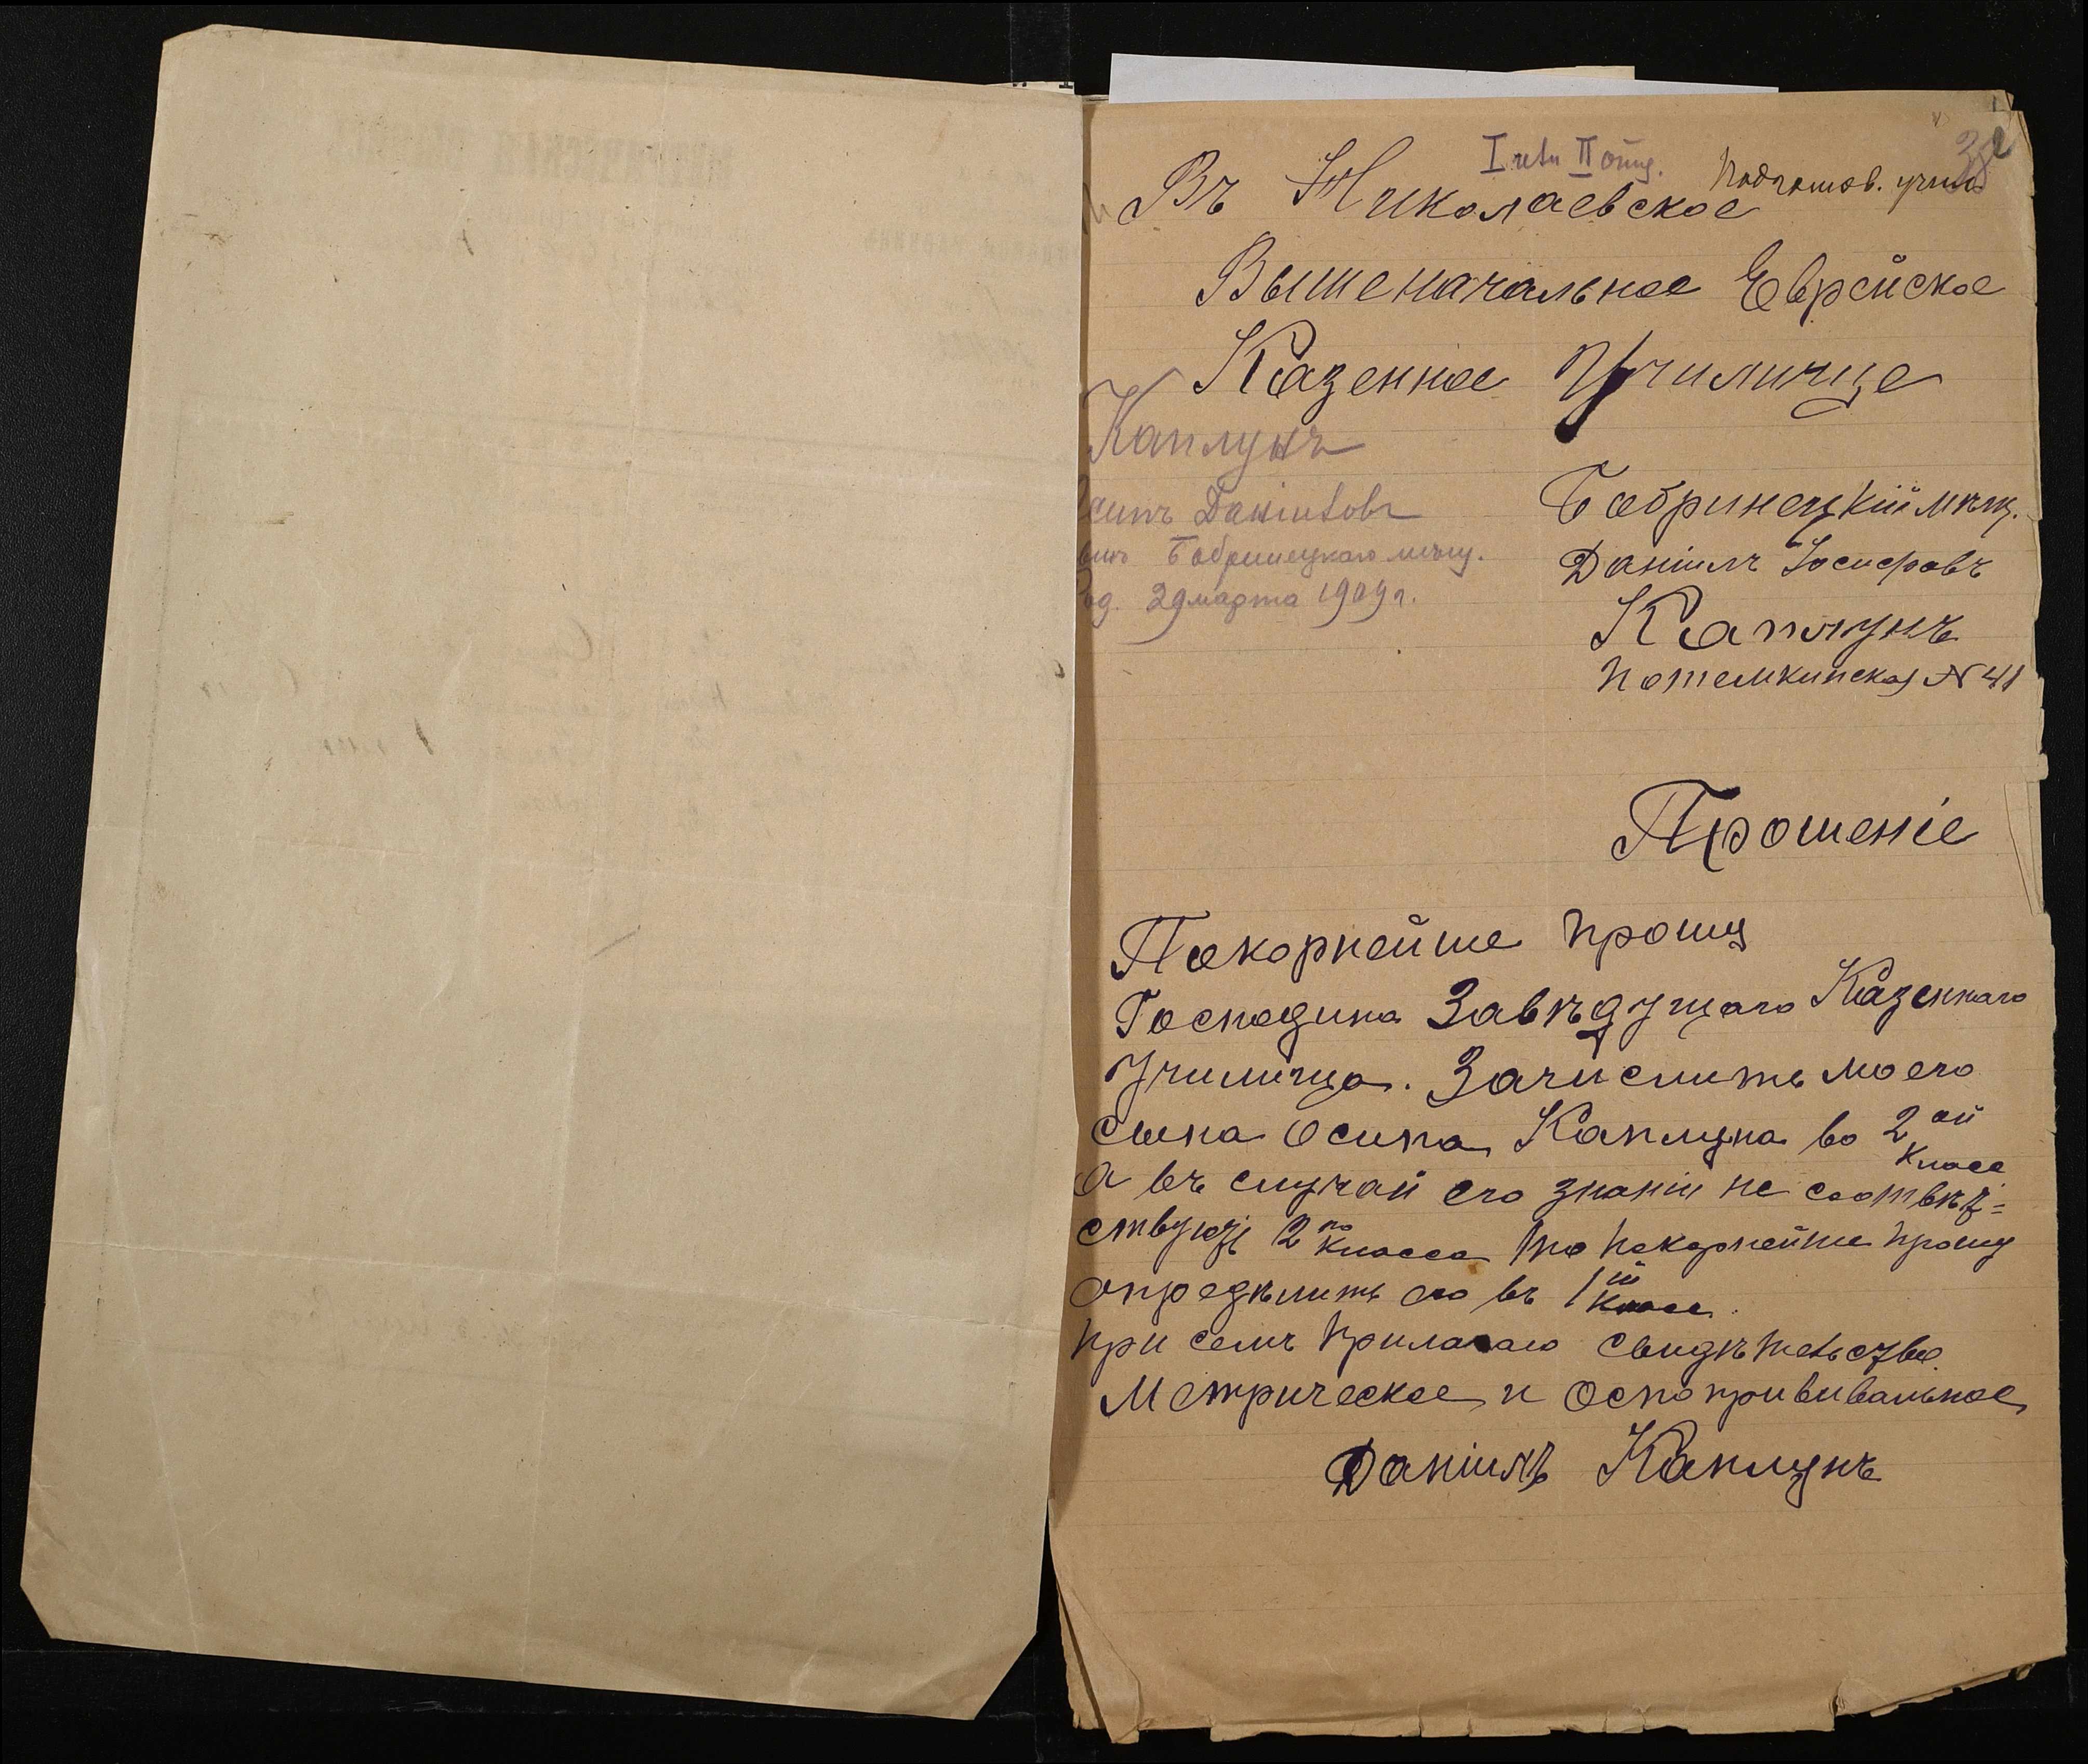 32
I
II отд.
Подготов. учил.
Въ Николаевское
Вышеначальное Еврейское
Казенное Училище
Каплунъ
Осипъ Данiиловъ
сынъ Бобринецкаго мѣщ.
род. 29 марта 1909 г.
Бобринецкiй мѣщ.
Данiилъ Iосифовъ
Каплунъ
Потемкинская N 41
Прошенiе
Покорнейше прошу
Господина Завѣдущаго Казеннаго
Училища. Зачислить моего
сына Осипа Каплуна во 2ой класс
а въ случай его знанiи не соотвѣт=
ствуютъ 2го класса то покорнейше прошу
опредѣлить его въ 1й класс.
при семъ прилагаю свидѣтельство
Метрическое и Оспопрививальное
Данiилъ Каплунъ